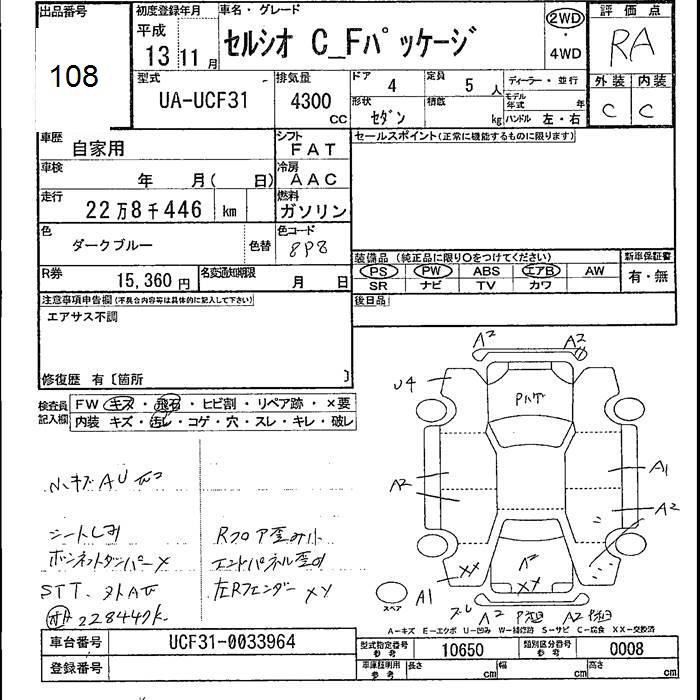 出品番号
108
初度登録年月
平成
13 11月
車名・グレード
セルシオ C_Fパッケージ
2WD
・
4WD
評価点
RA
外装 内装
C C
型式
UA-UCF31
排気量
4300
CC
ドア
4
定員
5 人
ディーラー・並行
形状
セダン
積載
kg
モデル年式
年
ハンドル 左・右
車歴
自家用
シフト
FAT
車検
年 月( 日)
冷房
AAC
走行
22万8千446 km
燃料
ガソリン
色
ダークブルー
色替
色コード
8P8
R券
15,360 円
名変通知期限
月 日
セールスポイント(正常に機能するものに限ります)
装備品 (純正品に限り○をつけてください)
PS PW ABS エアB AW
SR ナビ TV カワ
新車保証書
有・無
後日品
注意事項申告欄(不具合内容等は具体的に記入して下さい)
エアサス不調
修復歴 有〔箇所 〕
検査員
記入欄
FW キズ・飛石・ヒビ割・リペア跡・×要
内装 キズ・汚レ・コゲ・穴・スレ・キレ・破レ
小キズAU
シートしみ
ボンネットダンパー×
STT.
228449K
Rフロア歪み小
エンドパネル歪み
左Rフェンダー XX
A2 A2
U4
A2
A1
A2
A2
XX
XX
A1
A2
A2
スペア
A-キズ E-エクボ U-凹み W-補修跡 S-サビ C-腐食 XX-交換済
車台番号
UCF31-0033964
登録番号
型式指定番号
参考
10650
類別区分番号
参考
0008
車庫証明用
参考
長さ cm
幅 cm
高さ cm